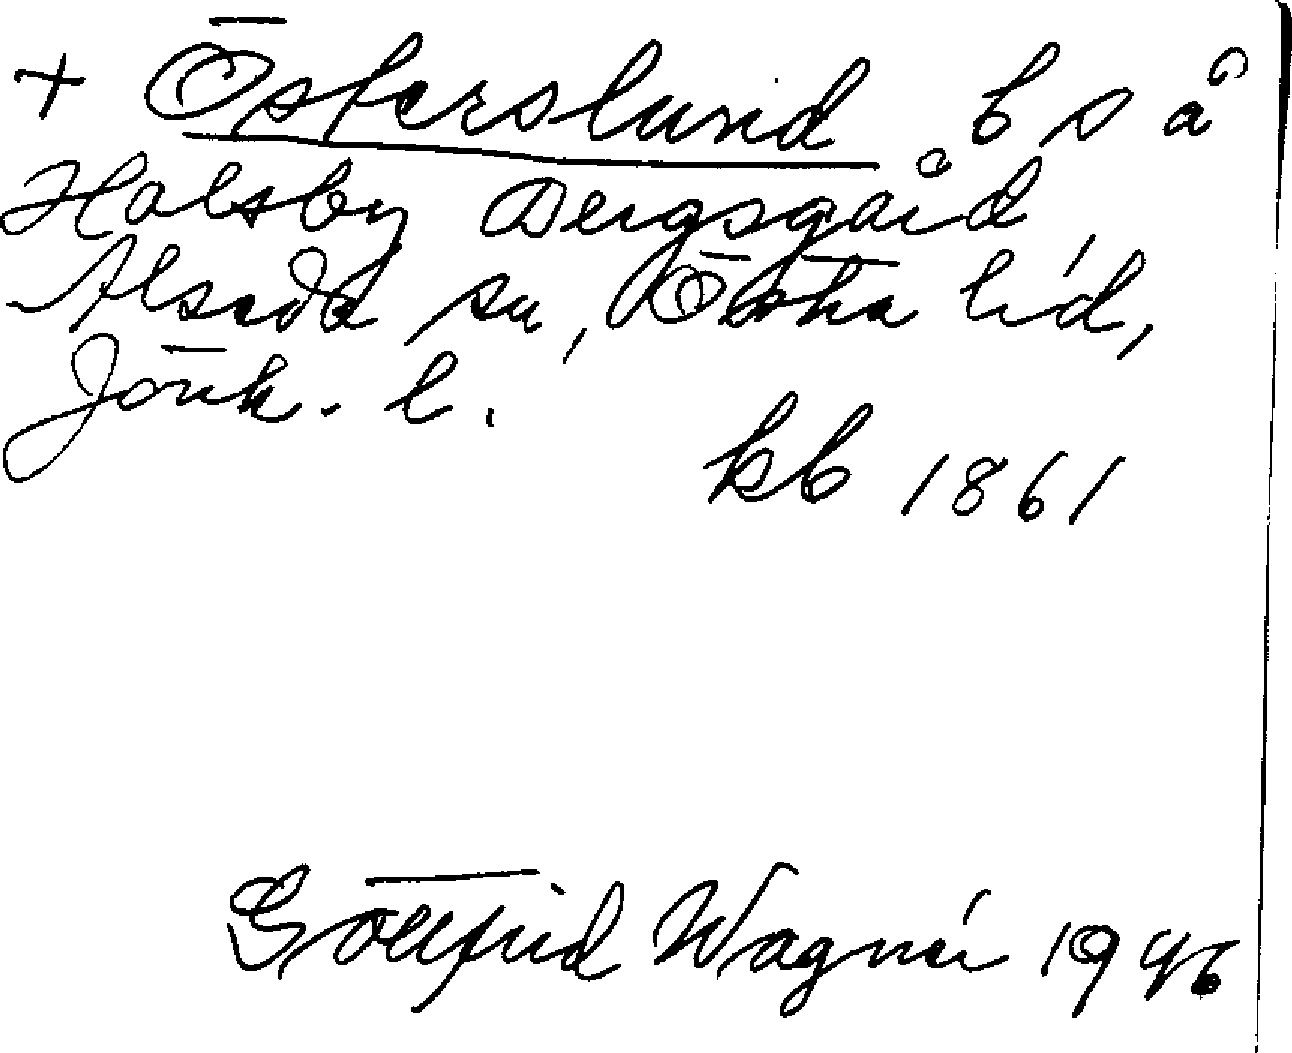 + Österslund b s å
Holsby Bergsgård,
Alseda sn, Östra hd,
Jönk. l.
kb 1861
Gottfrid Wagnér 1946